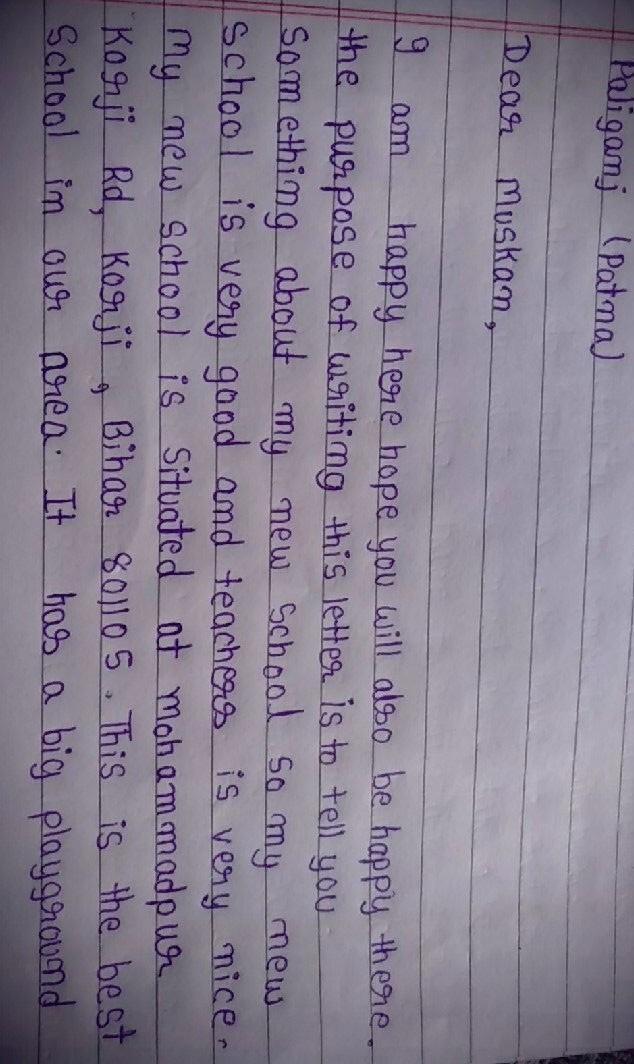 Paliganj (Patna)
Dear Muskan,
I am happy here hope you will also be happy there.
the purpose of writing this letter is to tell you
something about my new school so my new
school is very good and teachers is very nice.
My new school is situated at mohammadpur
Korji Rd, Korji, Bihar 801105. This is the best
School in our area. It has a big playground